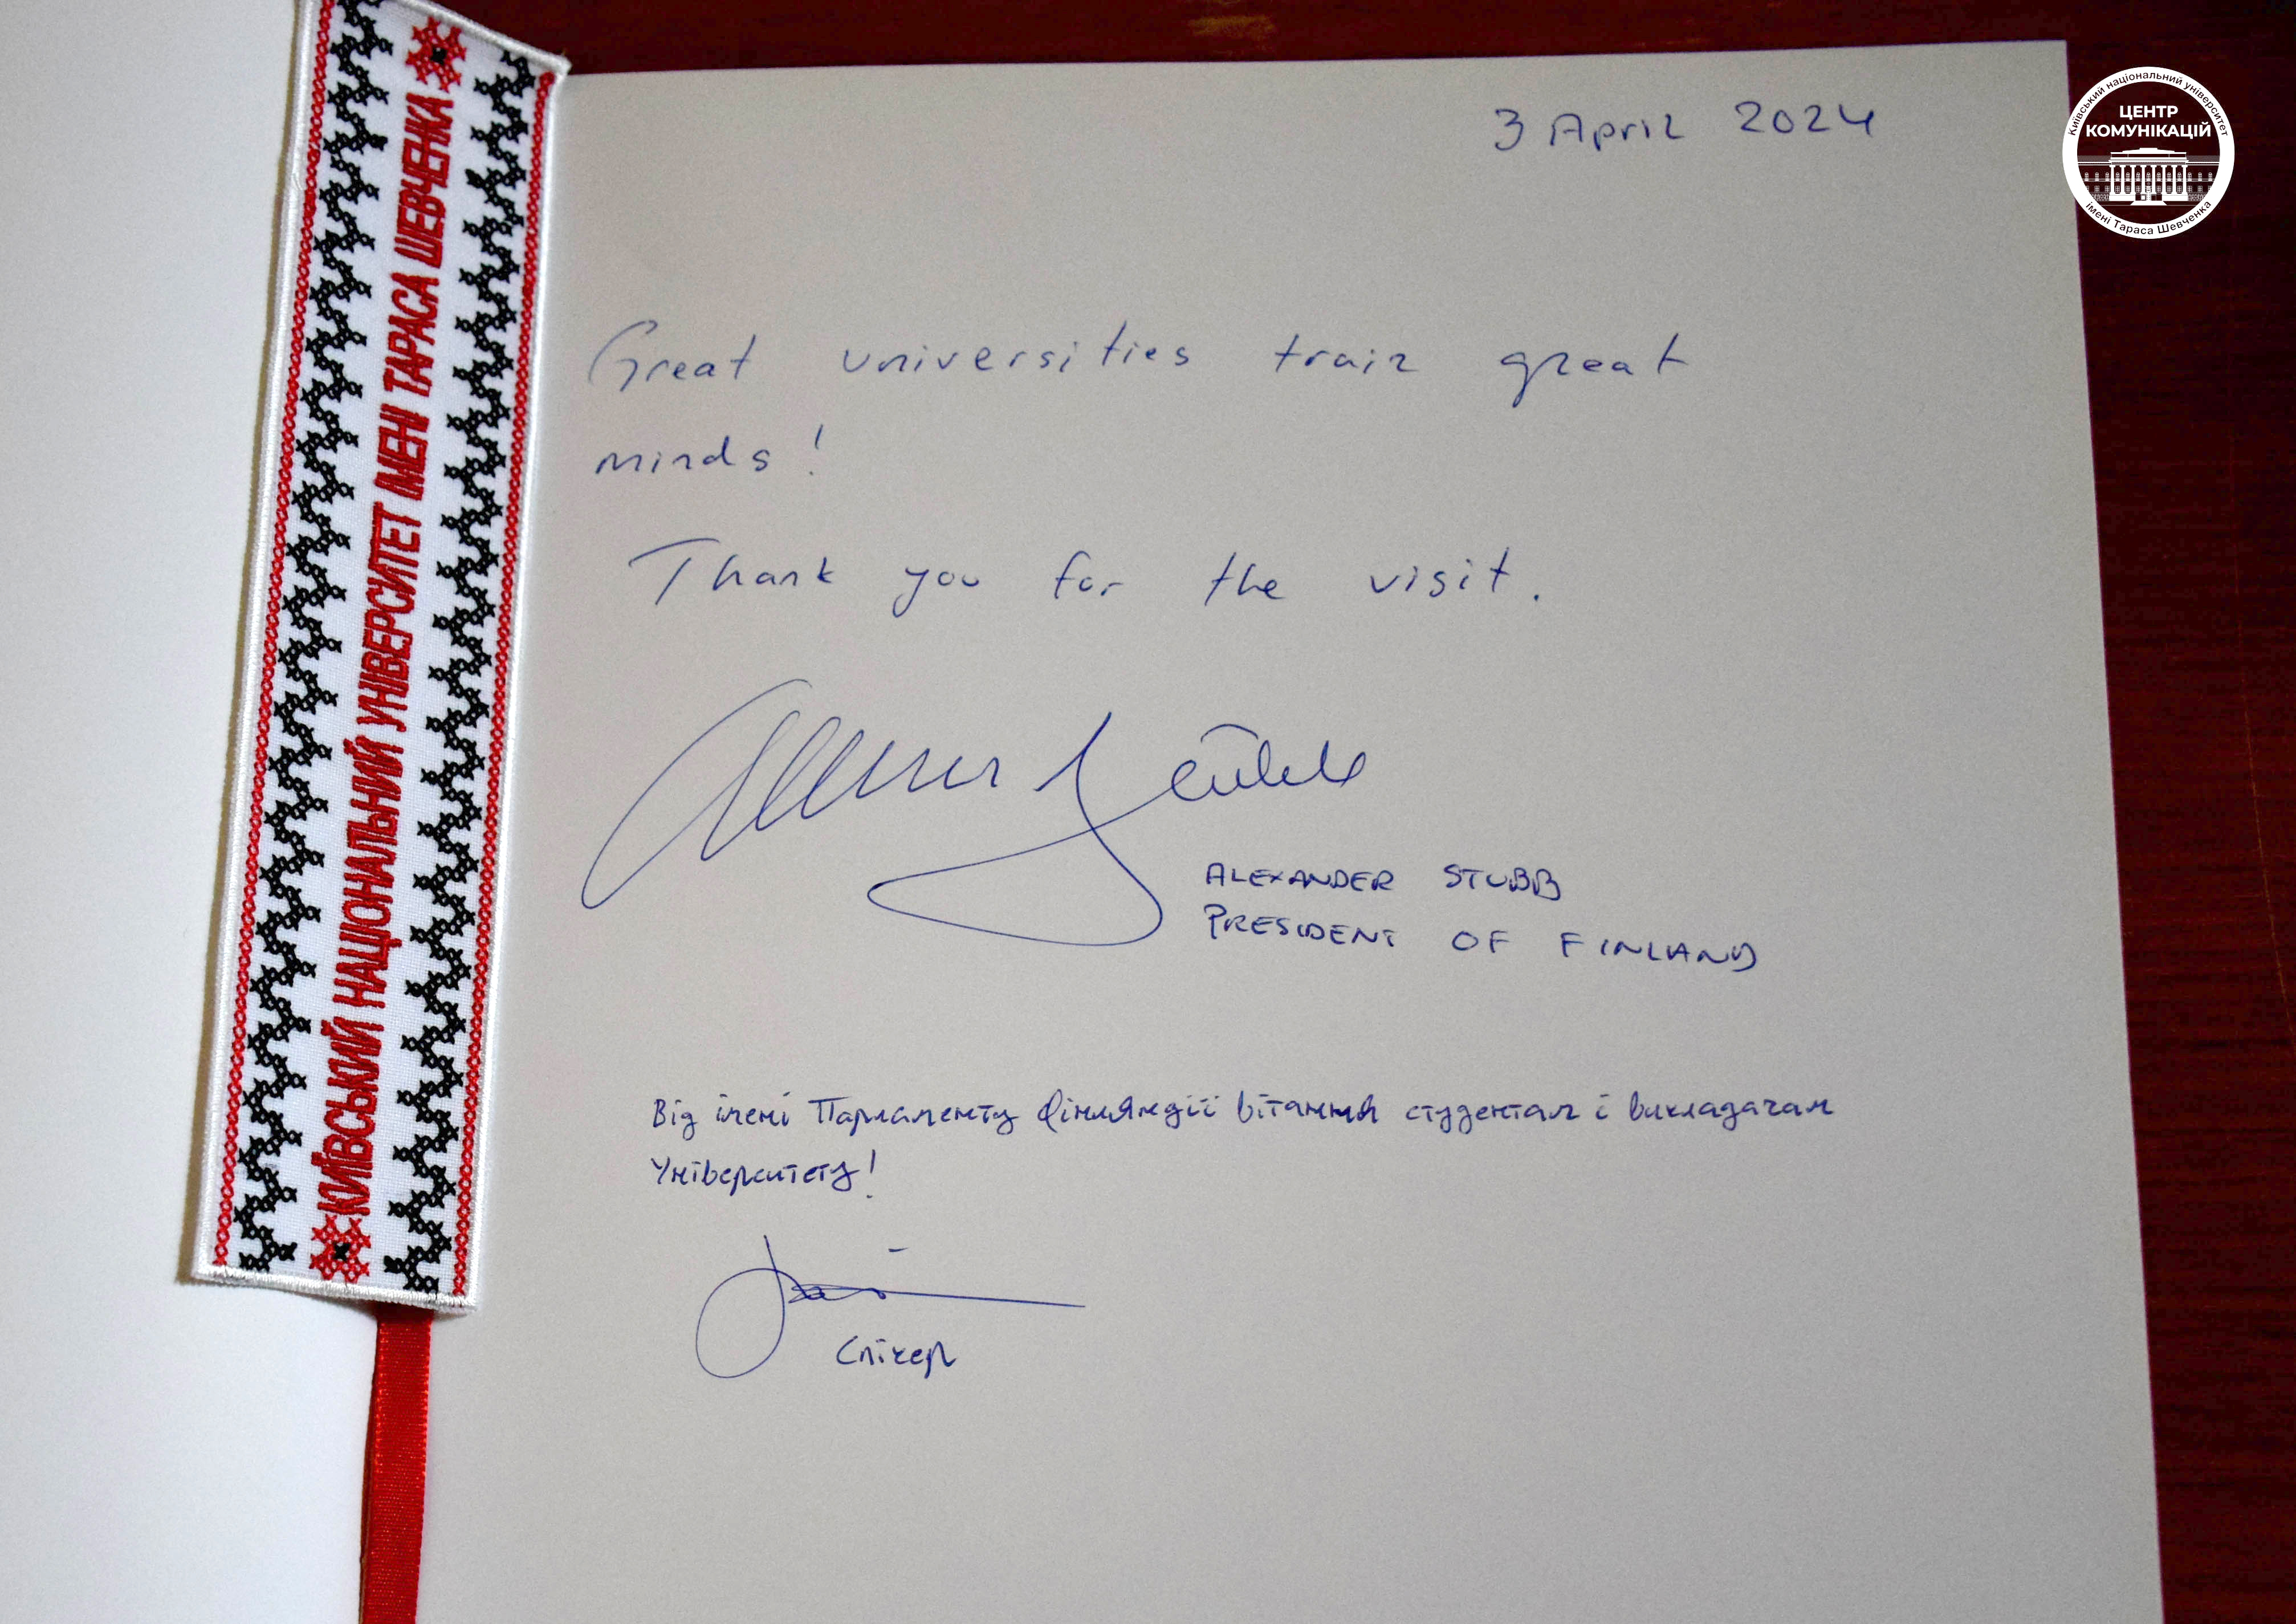 КИЇВСЬКИЙ НАЦІОНАЛЬНИЙ УНІВЕРСИТЕТ ІМЕНІ ТАРАСА ШЕВЧЕНКА
3 April 2024
Київський національний університет
ЦЕНТР
КОМУНІКАЦІЙ
імені Тараса Шевченка
Great universities train great
minds!
Thank you for the visit.
ALEXANDER STUBB
PRESIDENT OF FINLAND
Від імені Парламенту Фінляндії вітання студентам і викладачам
Університету!
Спікер